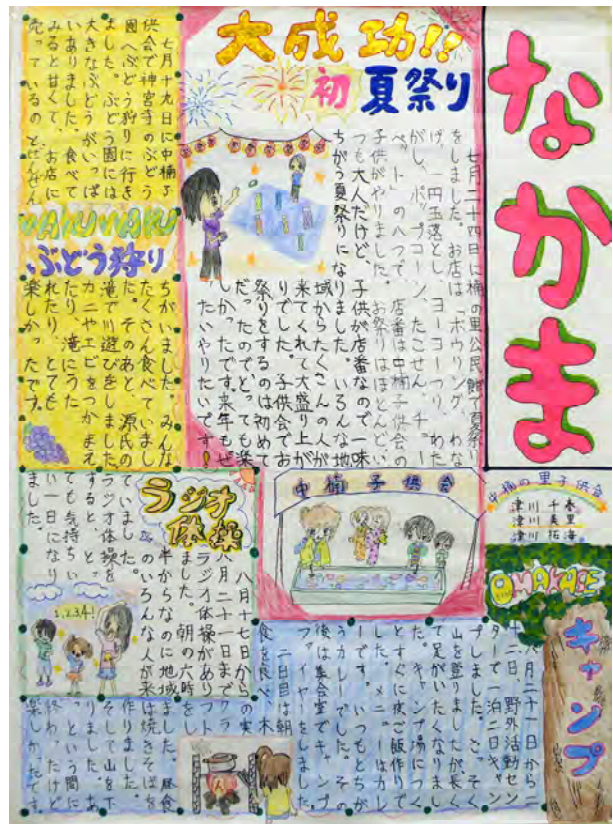 なかま
中楠の里子供会
津川 千春
津川 美里
津川 拓海
大成功!!
初夏祭り
七月二十四日に楠の里公民館で夏祭り
をしました。お店は「ボウリング、わな
げ、一円玉落とし、ヨーヨーつり、わた
がし、ポップコーン、たこせん、チュー
ペット」の八つで、店番は中楠子供会の
子供がやりました。お祭りはほとんどい
つも大人だけど、子供が店番なので一味
ちがう夏祭りになりました。いろんな地
域からたくさんの人が
来てくれて大盛り上が
りでした。子供会でお
祭りをするのは初めて
だったのでとっても楽
しかったです。来年もぜ
やりたいです!
中楠子供会
WAKUWAKU
ぶどう狩り
七月十九日に中楠子
供会で神宮寺のぶどう
園へぶどう狩りに行き
ました。ぶどう園には
大きなぶどうがいっぱ
いありました。食べて
みると甘くて、お店に
売っているのとぜんぜん
ちがいました。みんな
たくさん食べていまし
た。そのあと、源氏の
滝で川遊びをしました
カニやエビをつかまえ
たり、滝にうた
れたり、とても
楽しかったです。
ラジオ体操
八月十七日から
八月二十一日まで
ラジオ体操があり
ました。朝の六時
半からなのに地域
のいろんな人が来
ていました。
ラジオ体操を
すると、とっ
ても気持ちい
い一日になり
ました。
1,2,3,4!
OMAKASE
キャンプ
八月二十一日から二
十二日、野外活動セン
ターで一泊二日キャン
プしました。
山を登りましたが長く
て足がいたくなりまし
た。キャンプ場につく
とすぐに夜ご飯作りで
した。メニューはカレ
ーです。いつもとちが
うカレーでした。その
後は集会室でキャンプ
ファイヤーをしました。
二日目は朝
食を食べ、木
の実
クラ
フト
をし
ました。昼食
は焼きそばを
作りました。
そして山を下
りました。あ
っという間に
終わったけど
楽しかったです。